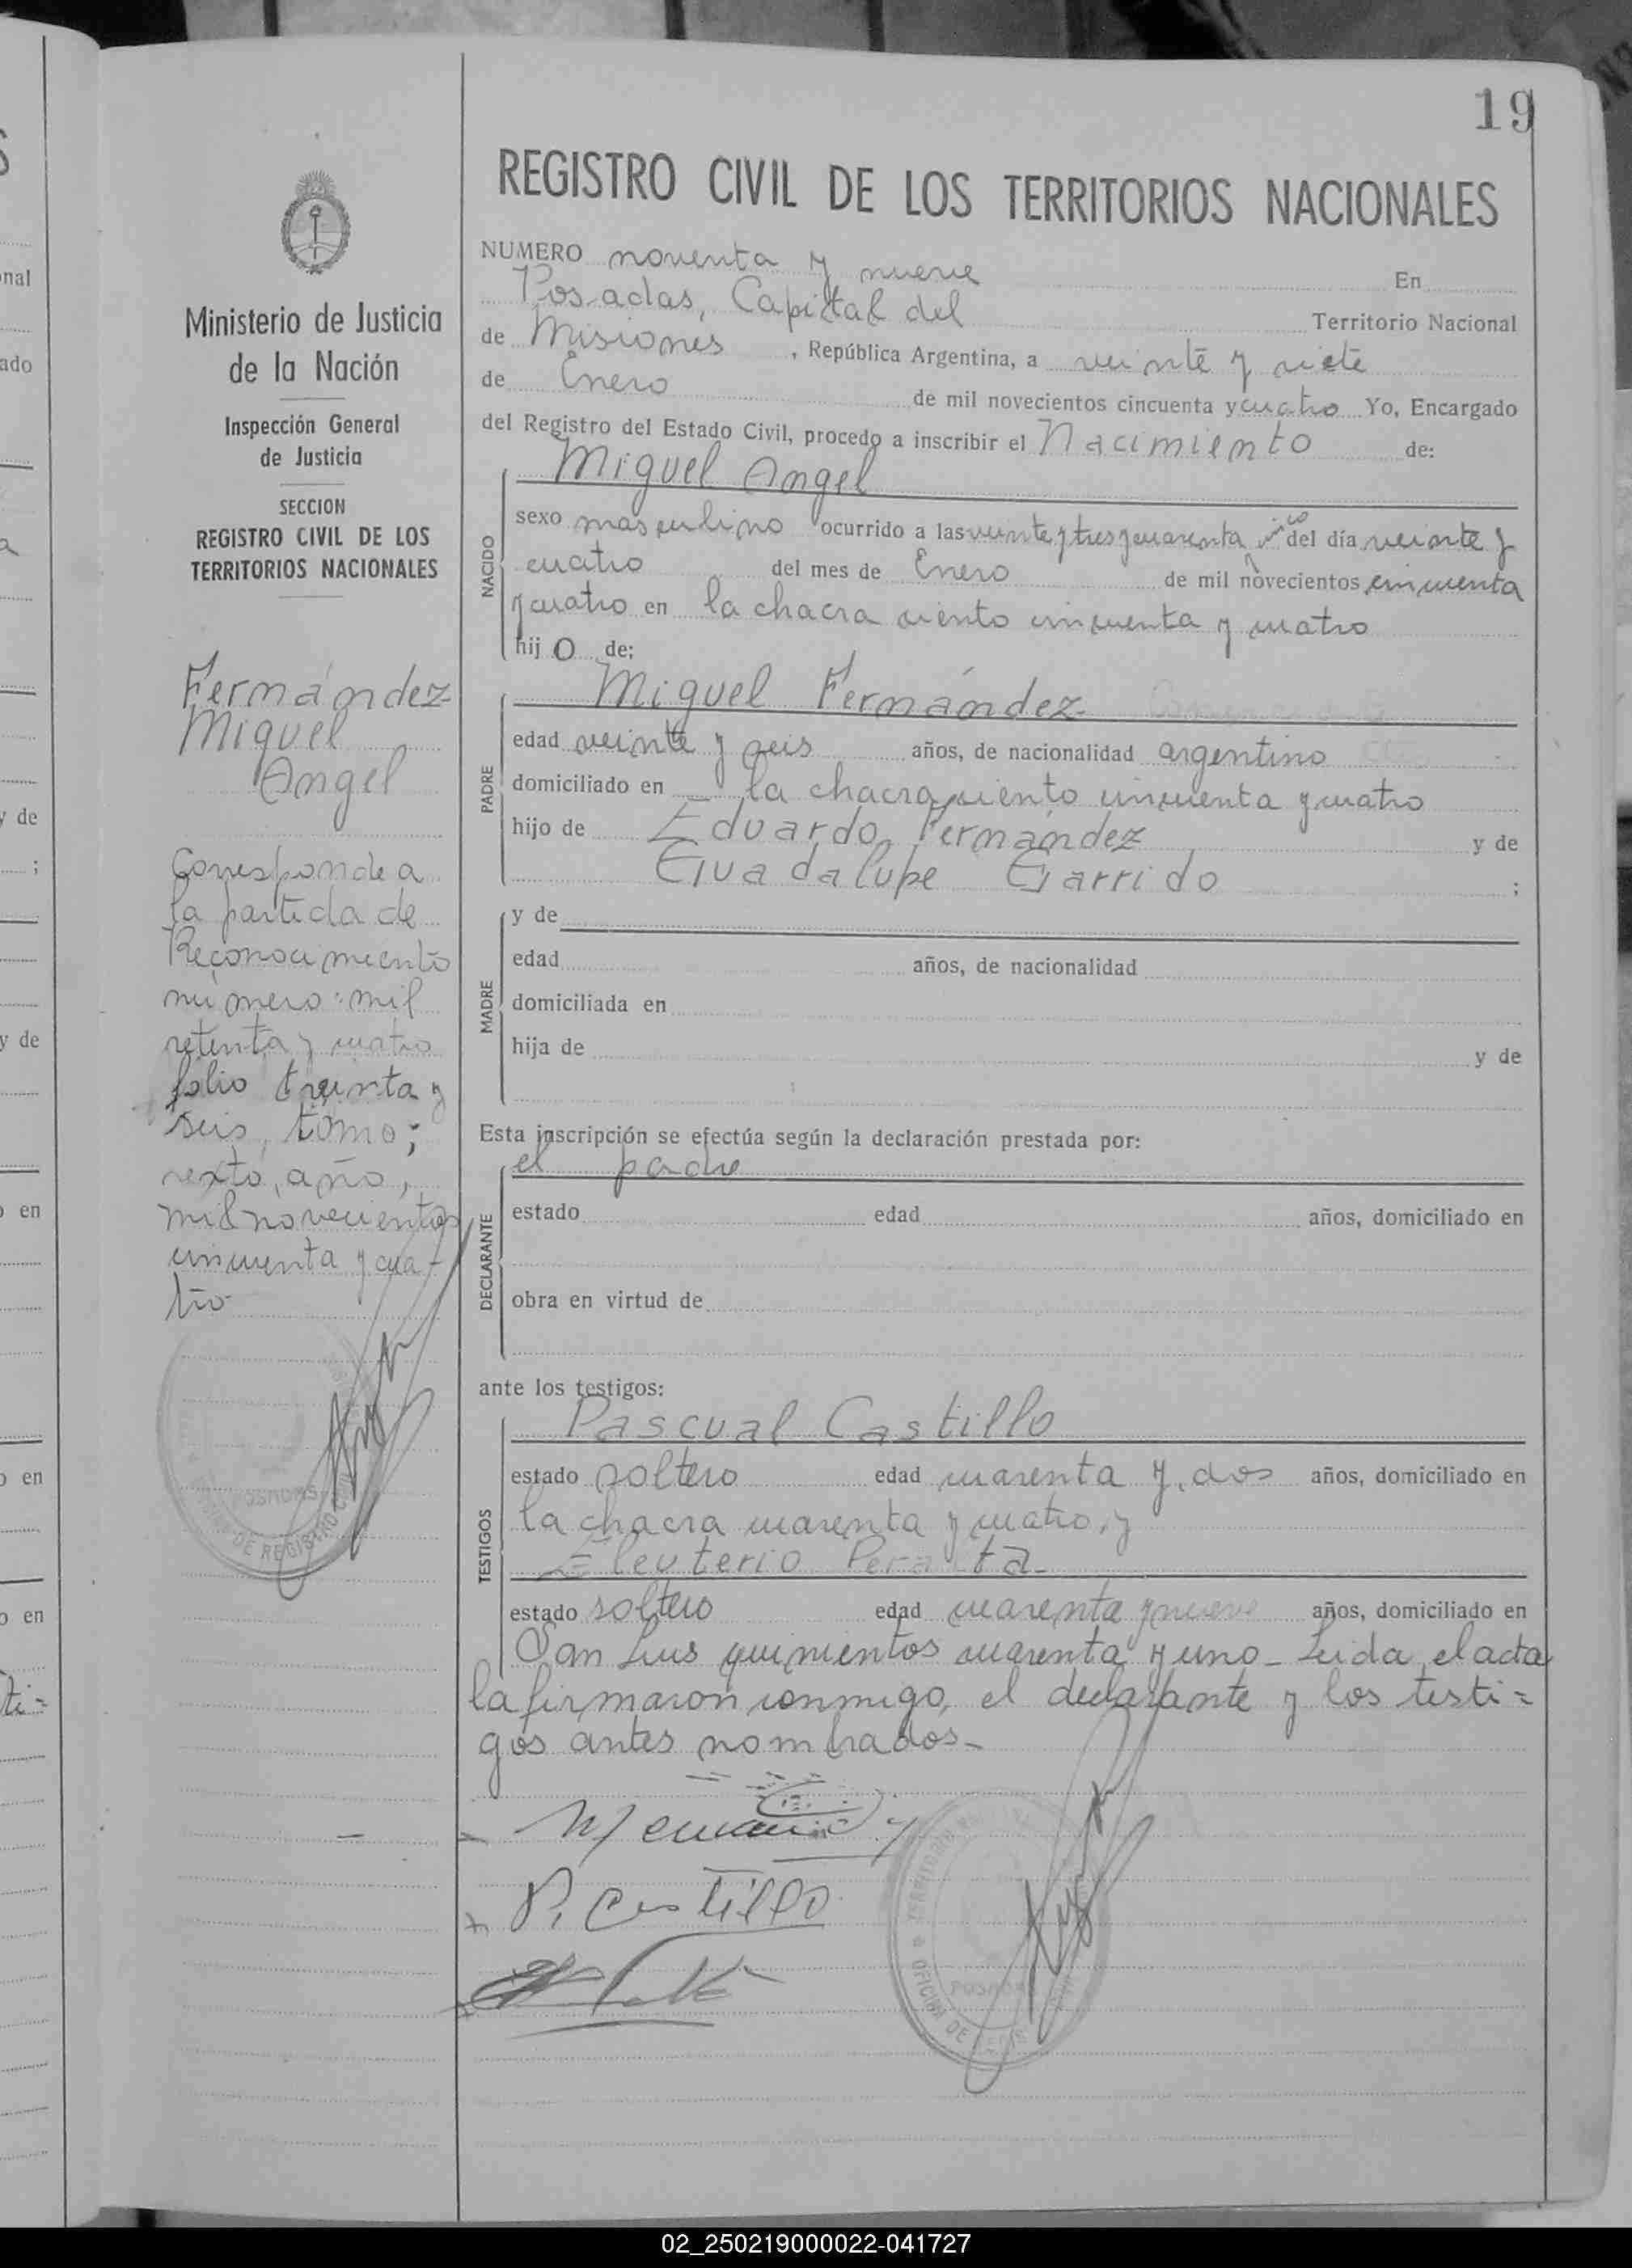 19
REGISTRO CIVIL DE LOS TERRITORIOS NACIONALES
Ministerio de Justicia
de la Nación
Inspección General
de Justicia
SECCION
REGISTRO CIVIL DE LOS
TERRITORIOS NACIONALES
Fernández
Miguel
Angel
Corresponde a
la partida de
Reconocimiento
número: mil
setenta y cuatro
folio treinta y
seis, tomo;
sexto, año,
mil novecientos
cincuenta y cua-
tro
POSADAS
DE REGISTRO
NUMERO noventa y nueve En
Posadas, Capital del Territorio Nacional
de Misiones, República Argentina, a veinte y siete
de Enero de mil novecientos cincuenta y cuatro Yo, Encargado
del Registro del Estado Civil, procedo a inscribir el Nacimiento de:
NACIDO
Miguel Angel
sexo masculino ocurrido a las veinte y tres y cuarenta y cinco del día veinte y
cuatro del mes de Enero de mil novecientos cincuenta
y cuatro en la chacra ciento cincuenta y cuatro
hijo de:
PADRE
Miguel Fernández
edad veinte y seis años, de nacionalidad argentino
domiciliado en la chacra ciento cincuenta y cuatro
hijo de Eduardo Fernández y de
Guadalupe Garrido ;
MADRE
y de
edad años, de nacionalidad
domiciliada en
hija de y de
Esta inscripción se efectúa según la declaración prestada por:
DECLARANTE
el padre
estado edad años, domiciliado en
obra en virtud de
ante los testigos:
TESTIGOS
Pascual Castillo
estado soltero edad cuarenta y dos años, domiciliado en
la chacra cuarenta y cuatro, y
Eleuterio Peralta
estado soltero edad cuarenta y nueve años, domiciliado en
San Luis quinientos cuarenta y uno - Leida el acta
la firmaron conmigo, el declarante y los testi=
gos antes nombrados-
P. Castillo
POSADAS
OFICINA DE
02_250219000022-041727